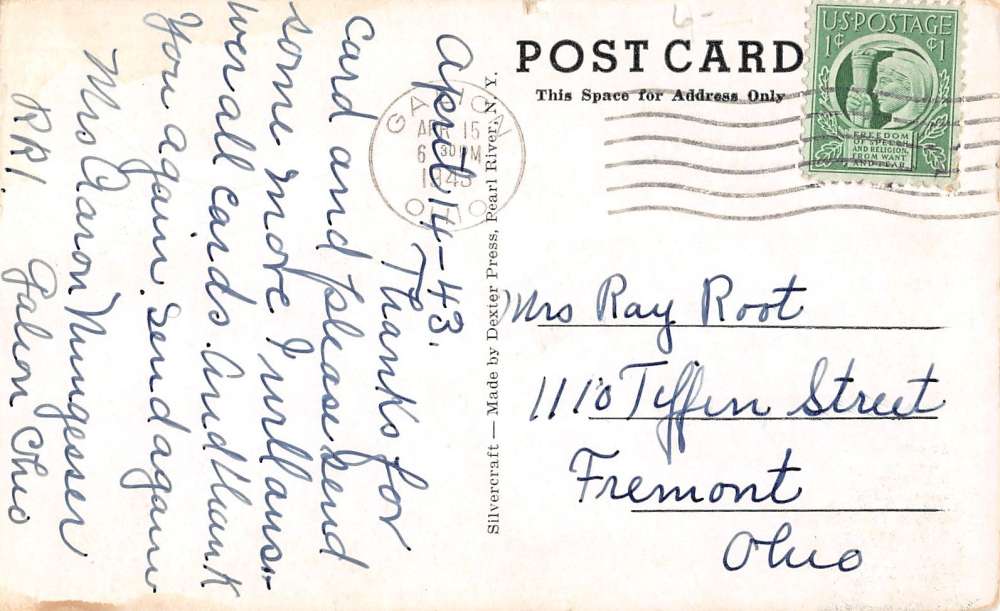 April 14-43.
Thanks for
Card and please send
some more I will ans-
wer all cards. And thank
You again. Send again
Mrs Aaron Nungesser
RR1 Galion Ohio
Silvercraft — Made by Dexter Press, Pearl River, N. Y.
GALION
APR 15
6 30 PM
1943
OHIO
POST CARD
This Space for Address Only
U.S. POSTAGE
1¢ ¢1
FREEDOM
OF SPEECH
AND RELIGION,
FROM WANT
AND FEAR
Mrs Ray Root
1110 Tiffin Street
Fremont
Ohio